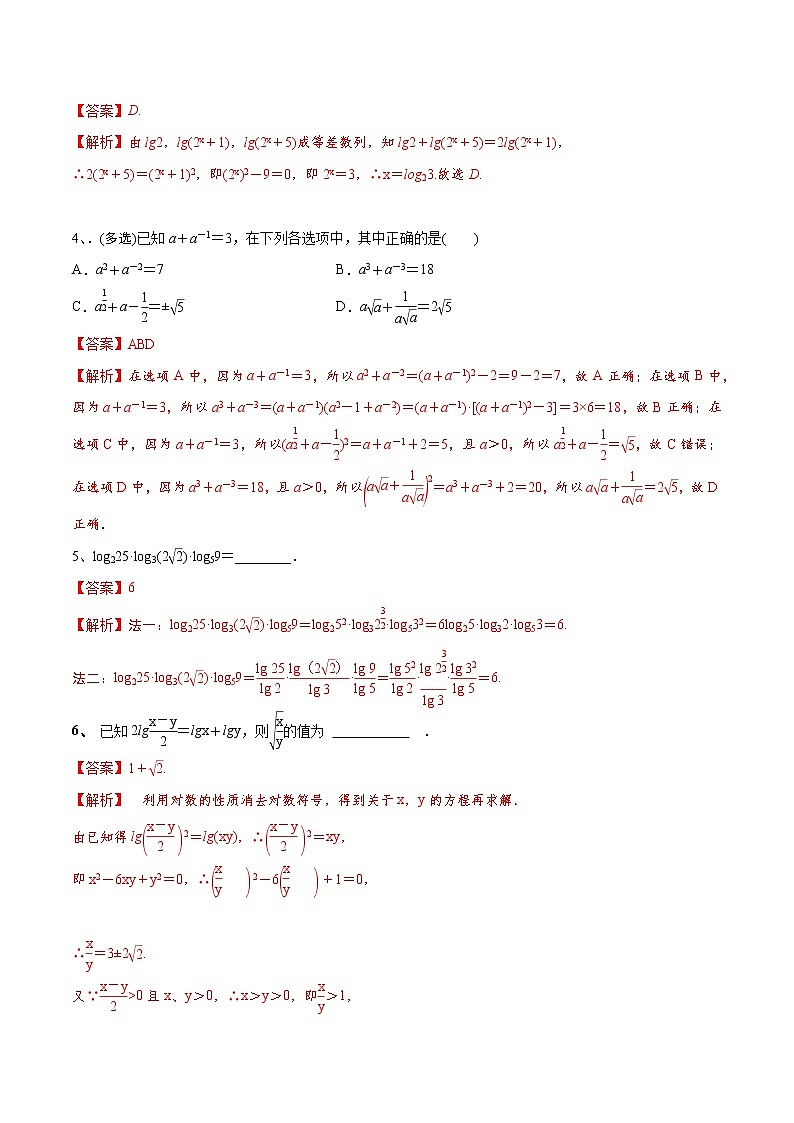 【答案】D.
【解析】由 lg2，lg(2ˣ＋1)，lg(2ˣ＋5)成等差数列，知 lg2＋lg(2ˣ＋5)＝2lg(2ˣ＋1)，
∴2(2ˣ＋5)＝(2ˣ＋1)²，即(2ˣ)²－9＝0，即 2ˣ＝3，∴x＝log₂3.故选 D.
4、. (多选)已知 a＋a⁻¹＝3，在下列各选项中，其中正确的是(　　)
A．a²＋a⁻²＝7　　B．a³＋a⁻³＝18
C．a^{1/2}＋a－\frac{1}{2}＝±√5　　D．a√a＋\frac{1}{a√a}＝2√5
【答案】ABD
【解析】在选项 A 中，因为 a＋a⁻¹＝3，所以 a²＋a⁻²＝(a＋a⁻¹)²－2＝9－2＝7，故 A 正确；在选项 B 中，
因为 a＋a⁻¹＝3，所以 a³＋a⁻³＝(a＋a⁻¹)(a²－1＋a⁻²)＝(a＋a⁻¹)·[(a＋a⁻¹)²－3]＝3×6＝18，故 B 正确；在
选项 C 中，因为 a＋a⁻¹＝3，所以(a^{1/2}＋a－\frac{1}{2})²＝a＋a⁻¹＋2＝5，且 a＞0，所以 a^{1/2}＋a－\frac{1}{2}＝√5，故 C 错误；
在选项 D 中，因为 a³＋a⁻³＝18，且 a＞0，所以(a√a＋\frac{1}{a√a})²＝a³＋a⁻³＋2＝20，所以 a√a＋\frac{1}{a√a}＝2√5，故 D
正确．
5、log₂25·log₃(2√2)·log₅9＝________．
【答案】6
【解析】法一：log₂25·log₃(2√2)·log₅9＝log₂5²·log₃2^{3/2}·log₅3²＝6log₂5·log₃2·log₅3＝6.
法二：log₂25·log₃(2√2)·log₅9＝\frac{lg 25}{lg 2}·\frac{lg（2√2）}{lg 3}·\frac{lg 9}{lg 5}＝\frac{lg 5²}{lg 2}·\frac{lg 2^{3/2}}{lg 3}·\frac{lg 3²}{lg 5}＝6.
6、 已知 2lg\frac{x－y}{2}＝lgx＋lgy，则√\frac{x}{y}的值为 ___________ ．
【答案】1＋√2.
【解析】 利用对数的性质消去对数符号，得到关于 x，y 的方程再求解．
由已知得 lg(\frac{x－y}{2})²＝lg(xy)，∴(\frac{x－y}{2})²＝xy，
即 x²－6xy＋y²＝0，∴(\frac{x}{y})²－6(\frac{x}{y})＋1＝0，
∴\frac{x}{y}＝3±2√2.
又∵\frac{x－y}{2}>0 且 x、y＞0，∴x＞y＞0，即\frac{x}{y}＞1，